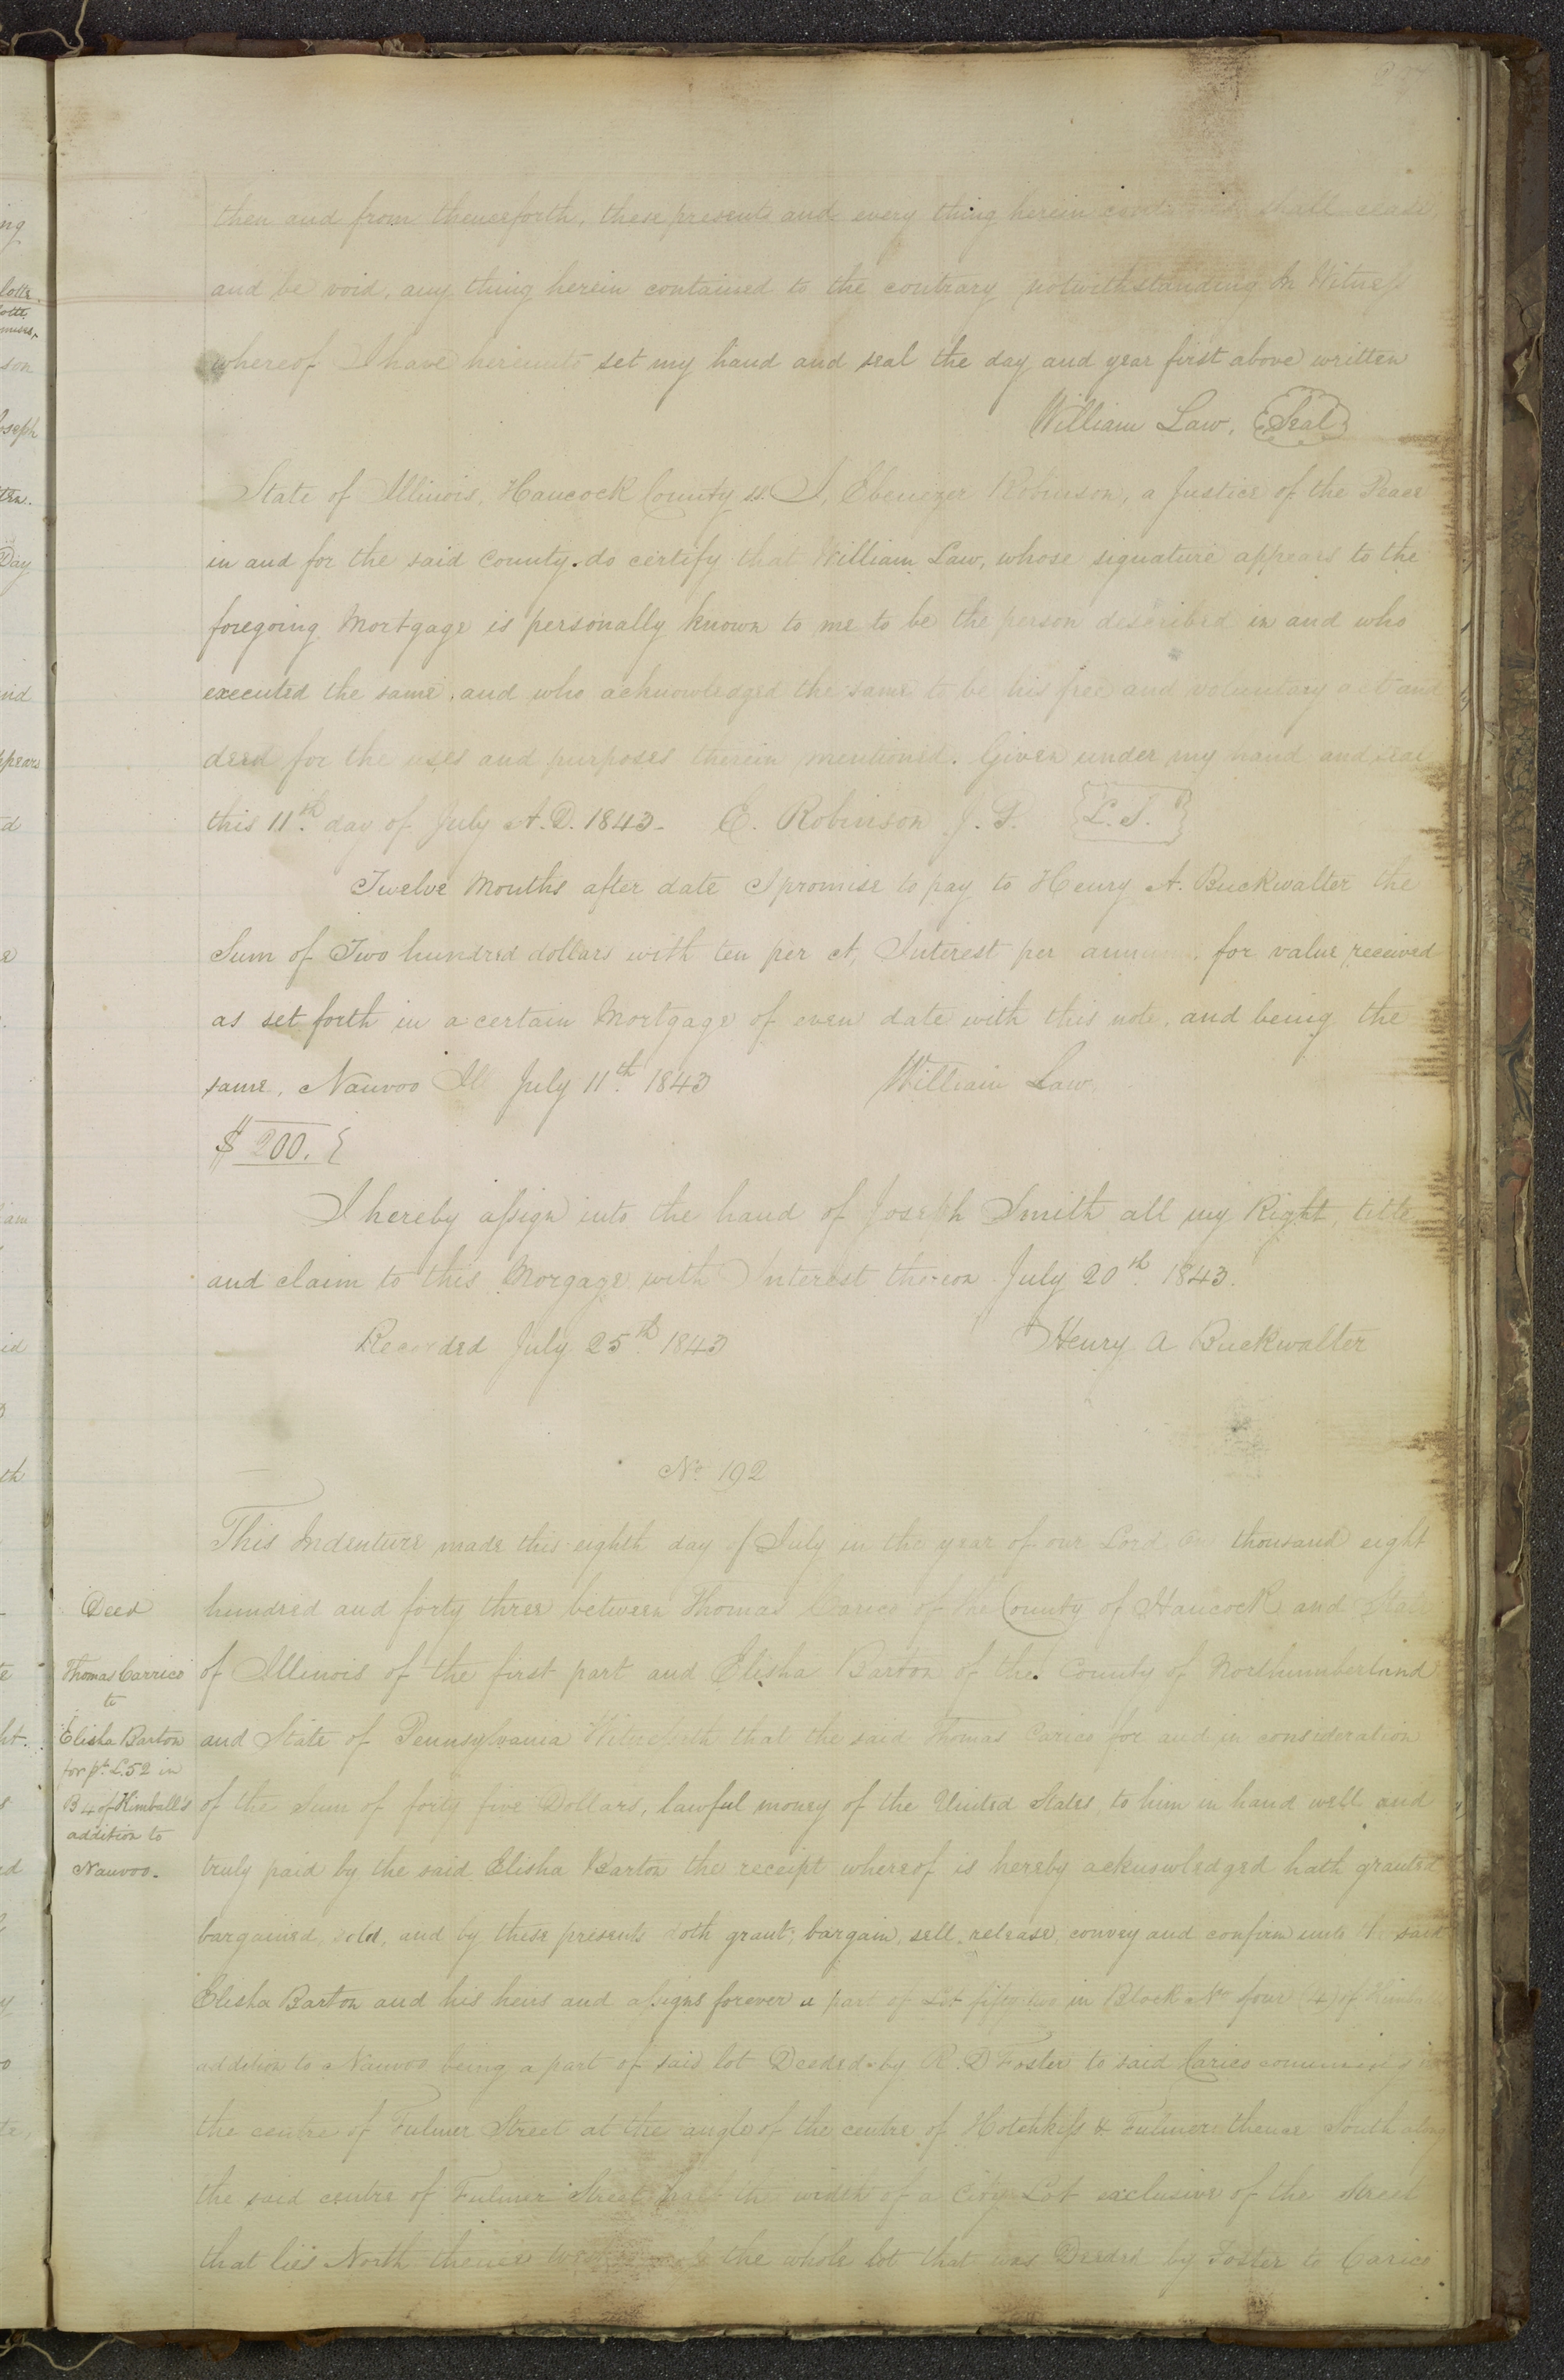 then and from thenceforth, these presents and every thing herein shall cease,
and be void, any thing herein contained to the contrary notwithstanding In Witness
whereof I have hereunto set my hand and seal the day and year first above written
William Law, Seal
State of Illinois, Hancock County ss. I, Ebenezer Robinson, a Justice of the Peace
in and for the said County. do certify that William Law, whose signature appears to the
foregoing Mortgage is personally known to me to be the person described in and who
executed the same, and who acknowledged the same to be his free and voluntary act and
deed for the uses and purposes therein mentioned. Given under my hand and seal
this 11th. day of July A.D. 1843. E. Robinson J. P. L.S.
Twelve Months after date I promise to pay to Henry A. Buckwalter the
Sum of Two hundred dollars with ten per ct, Interest per annum. for value received
as set forth in a certain Mortgage of even date with this note, and being the
same, Nauvoo Ill July 11th. 1843 William Law.
$ 200.
I hereby assign into the hand of Joseph Smith all my Right, title
and claim to this Morgage with Interest thereon July 20th. 1843.
Recorded July 25th. 1843 Henry A Buckwalter
No. 192
This Indenture made this eighth day of July in the year of our Lord on thousand eight
Deed
hundred and forty three between Thomas Carico of the County of Hancock and State
Thomas Carrico
to
Elisha Barton
for pt. L.52 in
B 4 of Kimball's
addition to
Nauvoo.
of Illinois of the first part and Elisha Barton of the County of Northumberland
and State of Pennsylvania Witnesseth that the said Thomas Carico for and in consideration
of the Sum of forty five Dollars, lawful money of the United States, to him in hand well and
truly paid by the said Elisha Barton the receipt whereof is hereby acknowledged hath granted
bargained, sold, and by these presents doth grant, bargain, sell, release, convey and confirm unto the said
Elisha Barton and his heirs and assigns forever a part of Lot fifty two in Block No four (4) of
addition to Nauvoo being a part of said lot Deeded by R. D Foster to said Carico commencing in
the centre of Fulmer Street at the angle of the centre of Hotchkiss & Fulmer thence South along
the said centre of Fulmer Street half the width of a City Lot exclusive of the street
that lies North thence the whole lot that was Deeded by Foster to Carico